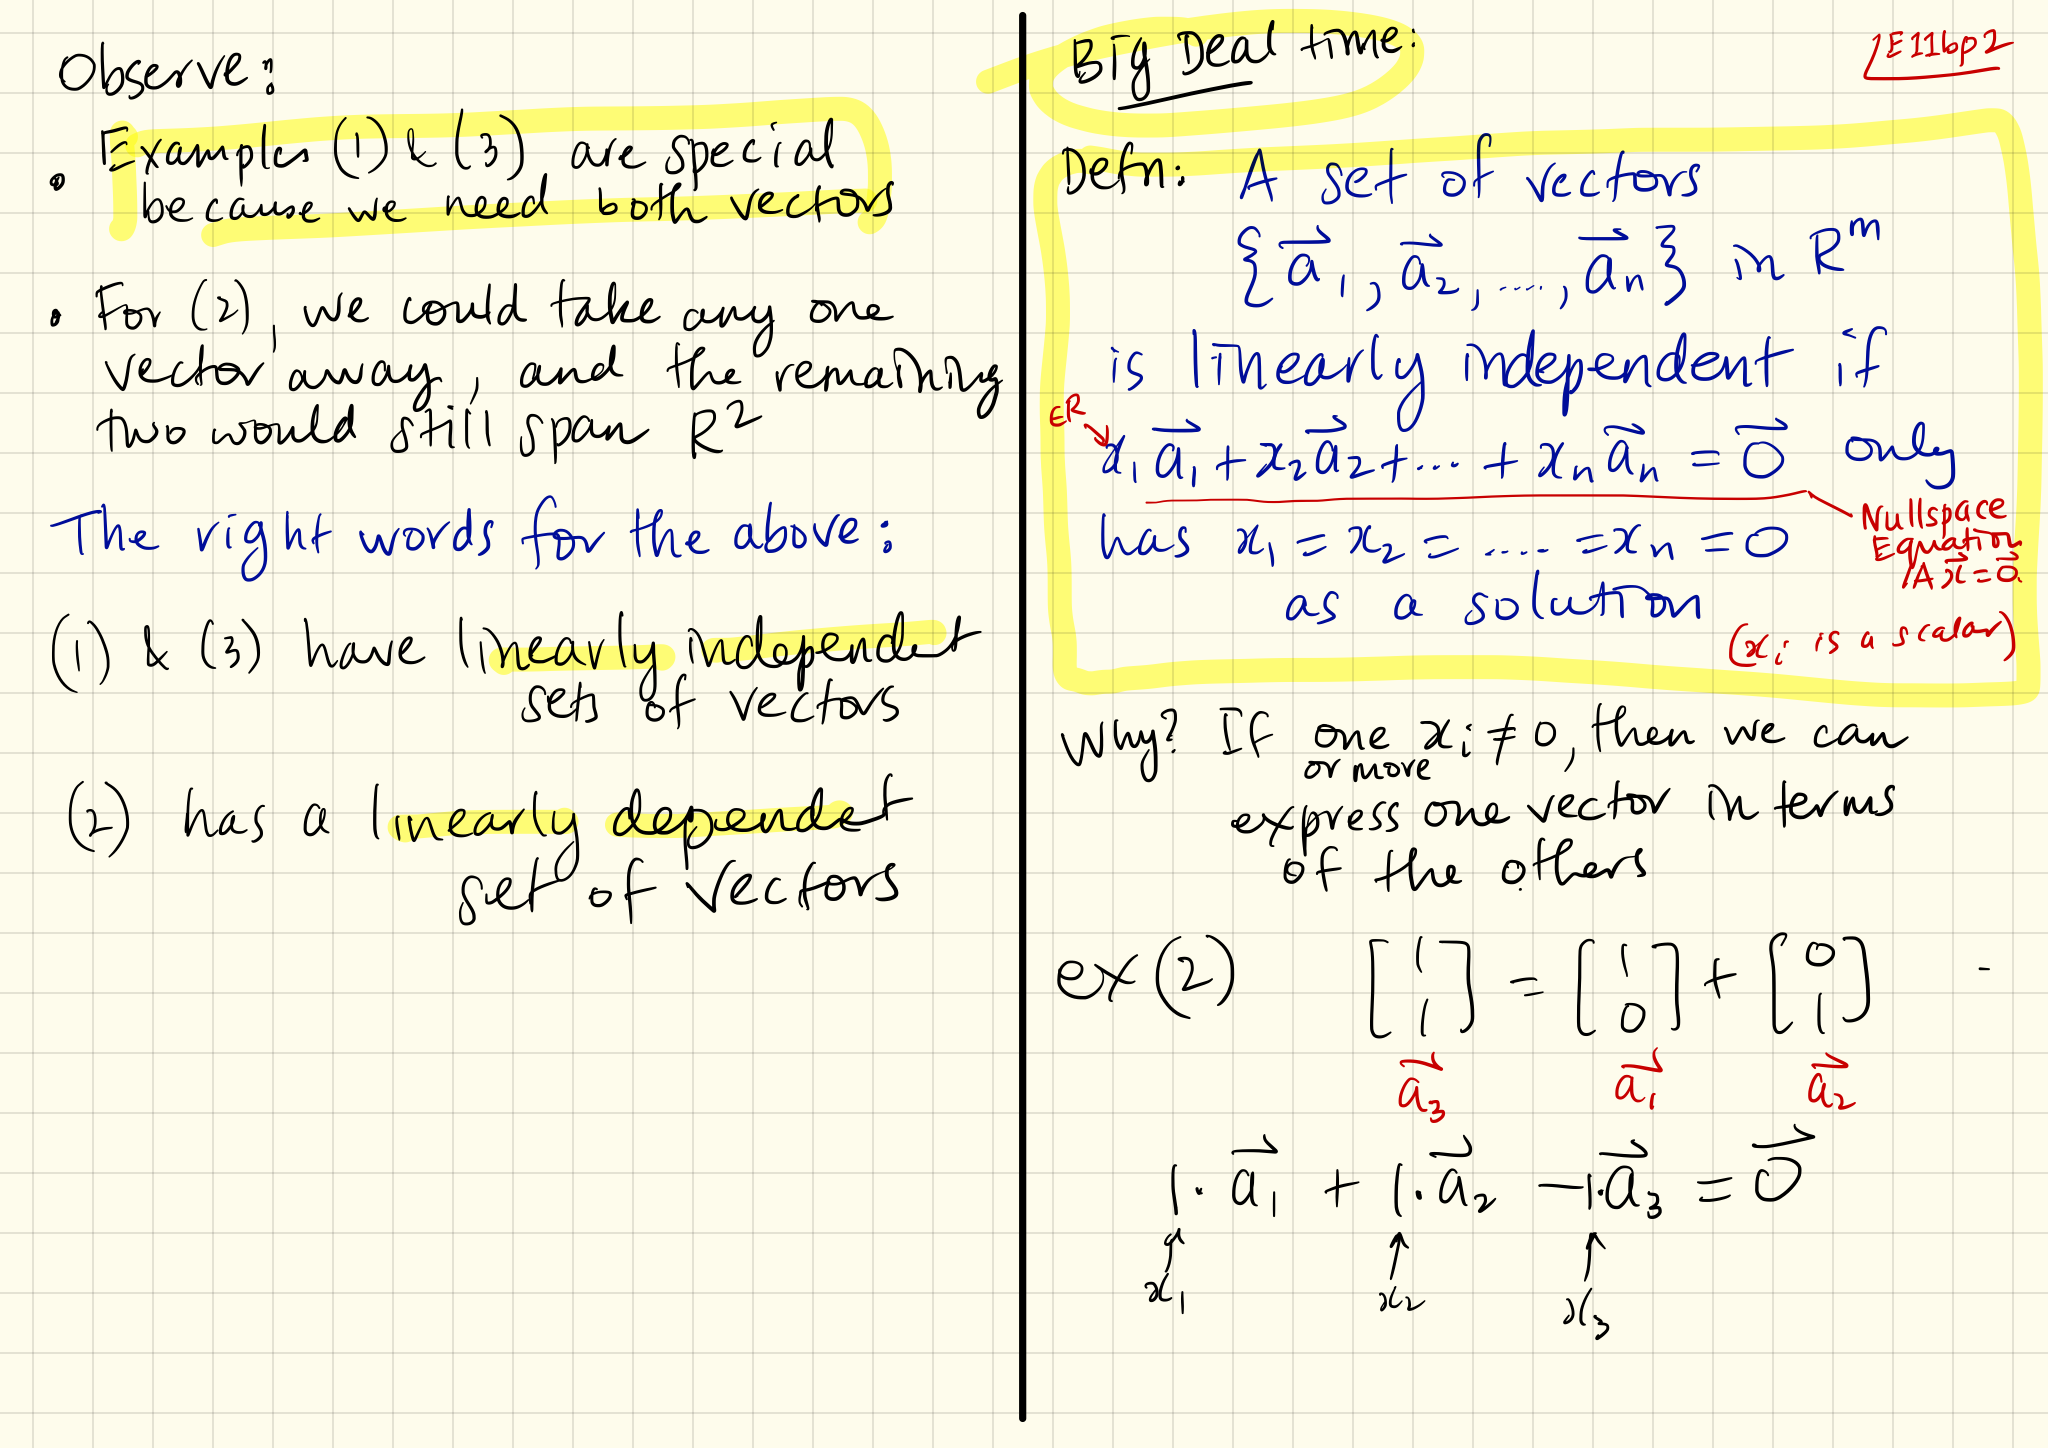 Observe:
• Examples (1) & (3) are special
because we need both vectors
• For (2), we could take any one
vector away, and the remaining
two would still span R²
The right words for the above:
(1) & (3) have linearly independet
sets of vectors
(2) has a linearly dependet
set of vectors
Big Deal time:
E11bp2
Defn: A set of vectors
{a⃗₁, a⃗₂, ...., a⃗n} in Rᵐ
is linearly independent if
∈R
x₁a⃗₁ + x₂a⃗₂ + ... + xₙa⃗ₙ = 0⃗ only
has x₁ = x₂ = .... = xₙ = 0
as a solution
Nullspace
Equation
A x⃗ = 0⃗.
(xᵢ is a scalar)
Why? If one xᵢ ≠ 0, then we can
or more
express one vector in terms
of the others
ex (2) [1 1] = [1 0] + [0 1]
a⃗₃ a⃗₁ a⃗₂
1. a⃗₁ + 1. a⃗₂ - 1. a⃗₃ = 0⃗
x₁ x₂ x₃